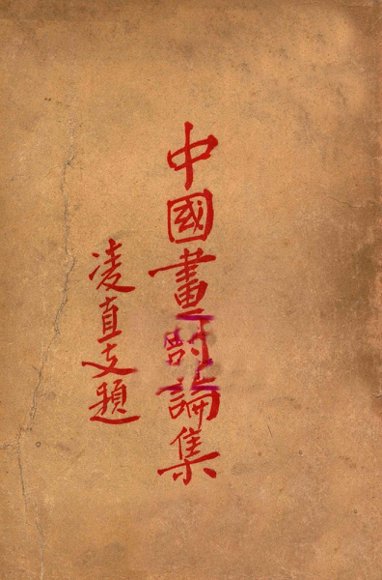 中國畫討論集
凌直支題